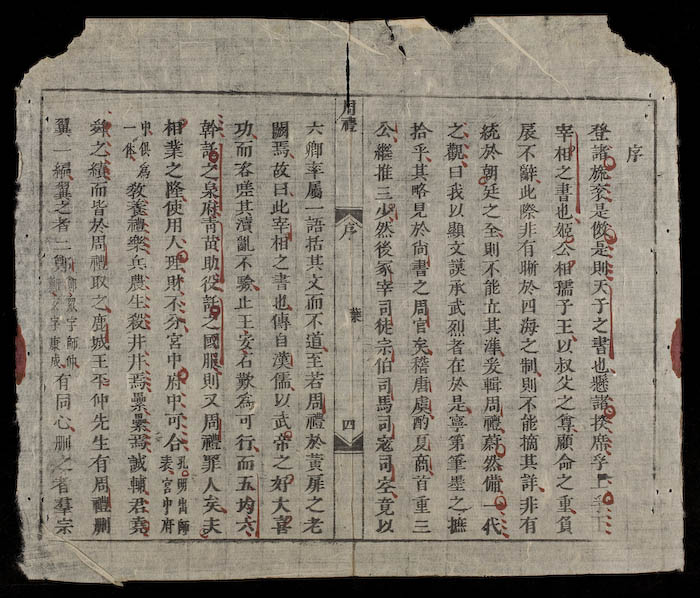 序
登諸旒衮是儆是則天子之書也懸諸揆席孚
宰相之書也姬公相孺子王以叔父之尊顧命之重負
扆不辭此際非有晰於四海之制則不能摘其詳非有
統於朝廷之全則不能立其準爰輯周禮蔚然備一代
之觀曰我以顯文謨承武烈者在於是寧第筆墨之摭
拾乎其略見於尚書之周官矣稽唐虞酌夏商首重三
公繼推三少然後冢宰司徒宗伯司馬司寇司空竟以
周禮
序
葉
四
六卿率屬一語括其文而不道至若周禮於黃扉之老
關焉故曰此宰相之書也傳自漢儒以武帝之好大喜
功而吝嗟其瀆亂不驗止王安石歎為可行而五均六
幹託之泉府青苗助役託之國服則又周禮罪人矣夫
相業之隆使用人理財不分宮中府中可合孔明出師表宮中府
中俱為一体敎養禮樂兵農生殺井井焉纍纍焉誠輔君堯
舜之績而皆於周禮取之鹿城王平仲先生有周禮刪
翼一編翼之者二鄭鄭眾字師仲鄭玄字康成有同心刪之者羣宗